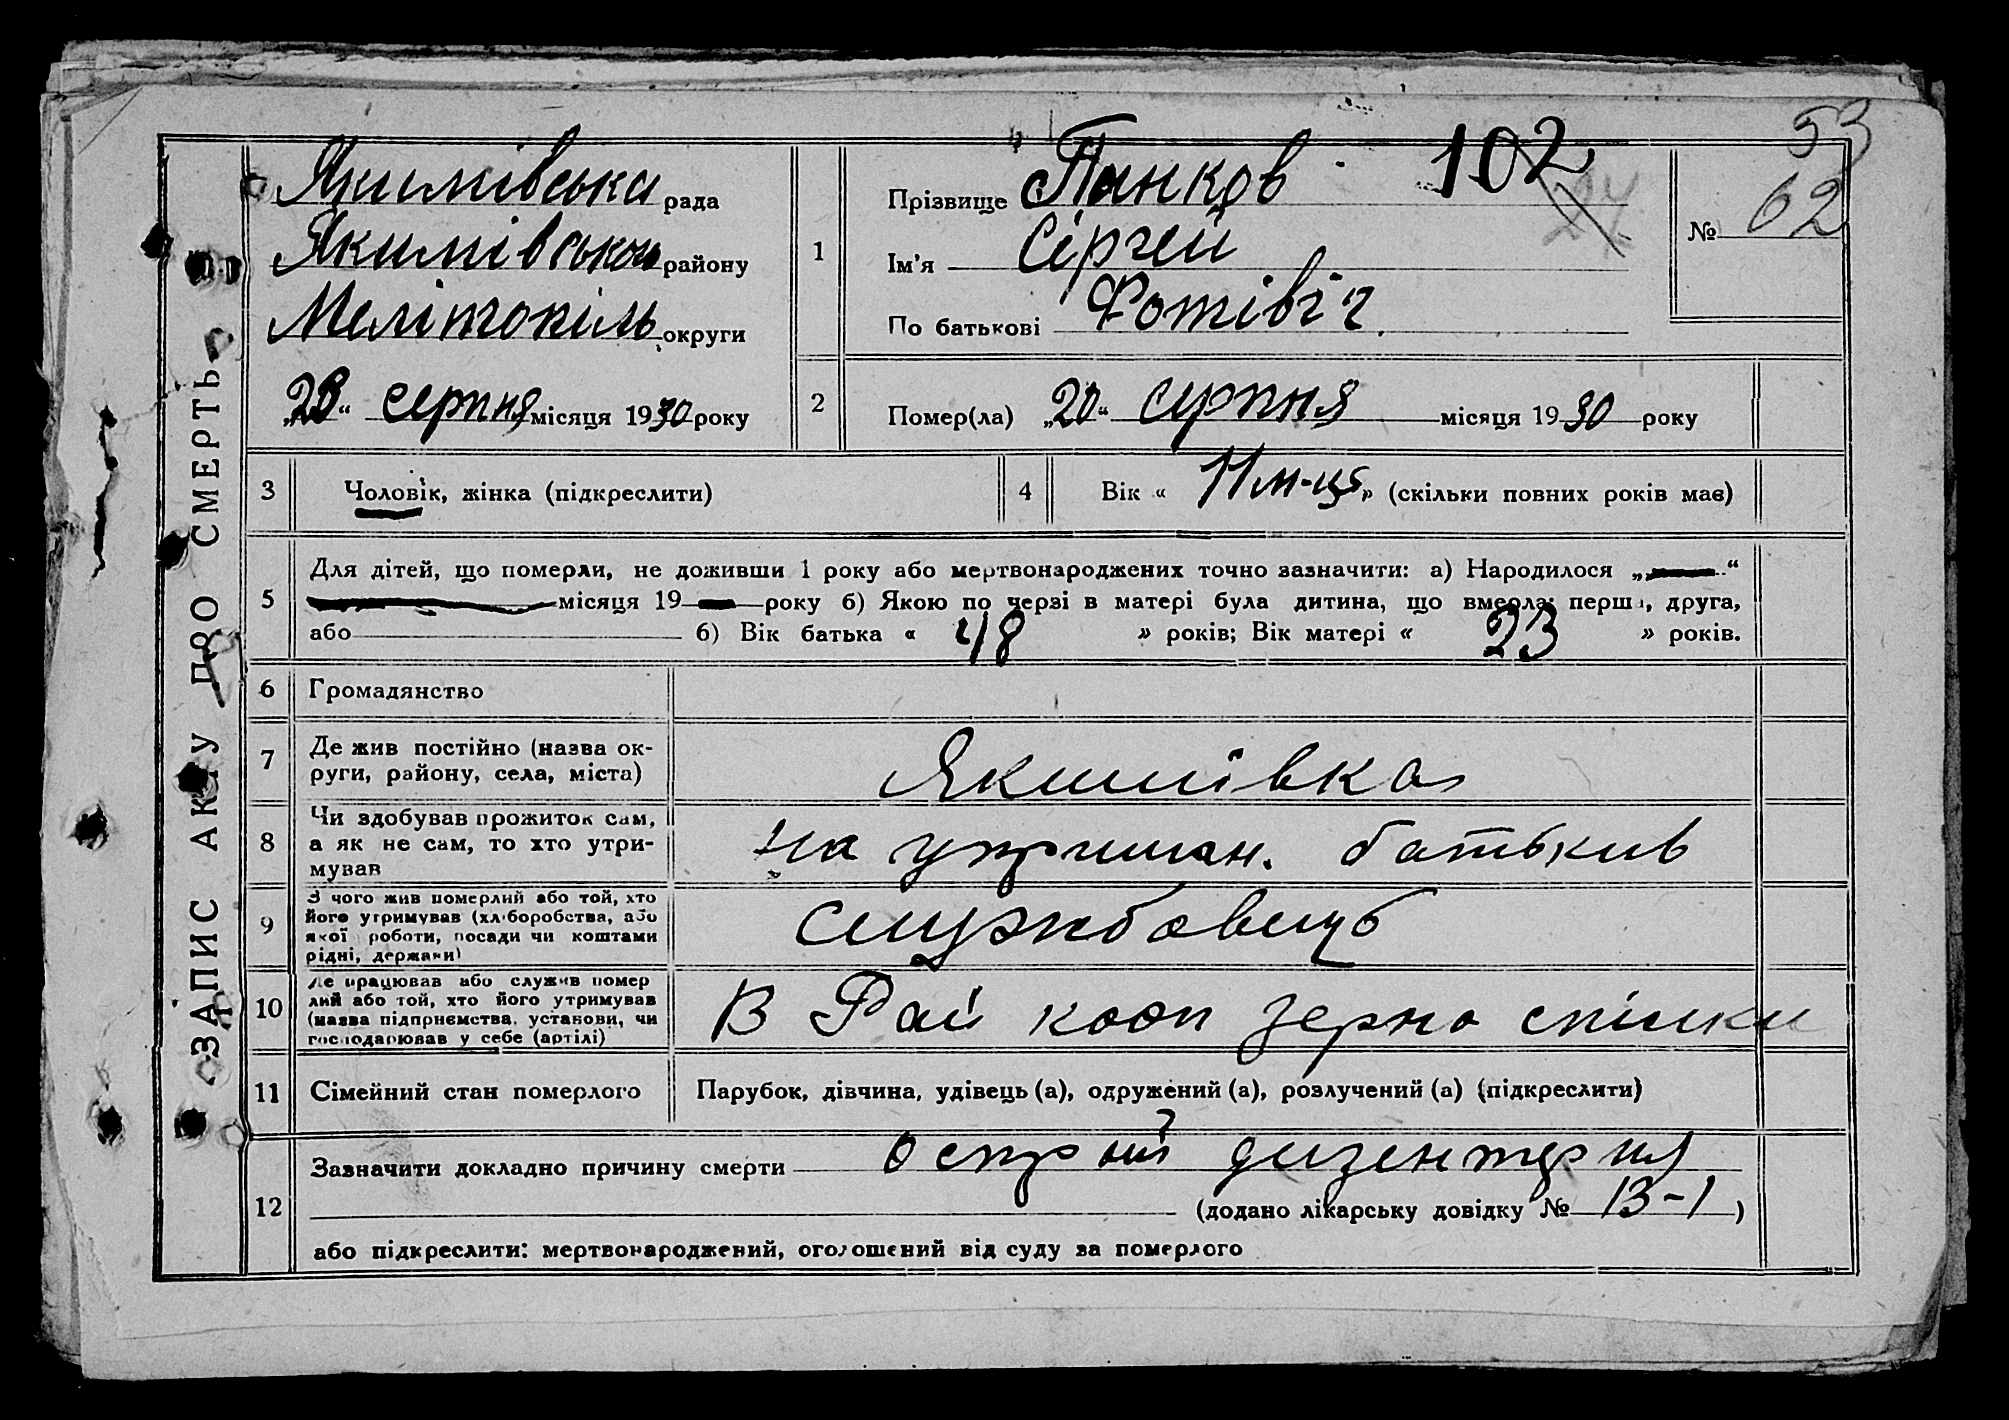 53
ЗАПИС АКТУ ПРО СМЕРТЬ
Якимівська рада
Якимівська району
Мелітопіль округи
„23“ серпня місяця 1930 року
1
Прізвище Панков
102
24
Ім'я Сергей
По батькові Фотівіч.
№ 62
2
Помер(ла) „20“ серпня місяця 1930 року
3 Чоловік, жінка (підкреслити)
4 Вік « 11 м-ців » (скільки повних років має)
5 Для дітей, що померли, не доживши 1 року або мертвонароджених точно зазначити: а) Народилося „ “
місяця 19 року б) Якою по черзі в матері була дитина, що вмерла: перша, друга,
або б) Вік батька « 48 » років; Вік матері « 23 » років.
6 Громадянство
7 Де жив постійно (назва ок-
руги, району, села, міста)
Якимівка
8 Чи здобував прожиток сам,
а як не сам, то хто утри-
мував
на утриман. батьків
9 З чого жив померлий або той, хто
його утримував (хліборобства, або
якої роботи, посади чи коштами
рідні, держави)
службовець
10 Де працював або служив помер
лий або той, хто його утримував
(назва підприємства, установи, чи
господарював у себе (артілі)
В Рай кооп зерно спілки
11 Сімейний стан померлого
Парубок, дівчина, удівець (а), одружений (а), розлучений (а) (підкреслити)
12 Зазначити докладно причину смерти острий дизентерия
(додано лікарську довідку № 13-1 )
або підкреслити: мертвонароджений, оголошений від суду за померлого